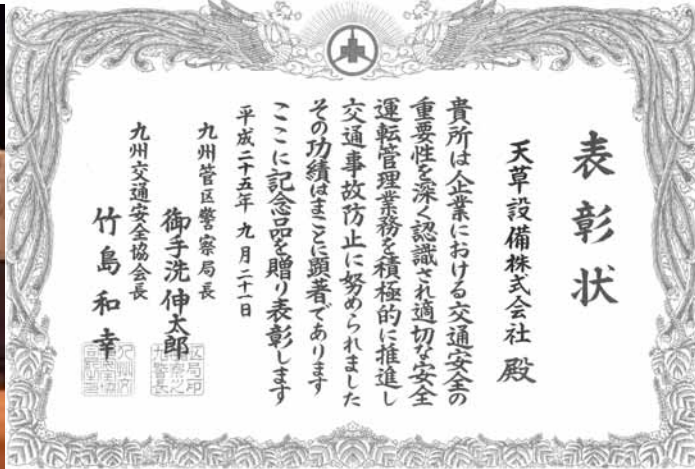 表彰状
天草設備株式会社 殿
貴所は企業における交通安全の
重要性を深く認識され適切な安全
運転管理業務を積極的に推進し
交通事故防止に努められました
その功績はまことに顕著であります
ここに記念品を贈り表彰します
平成二十五年 九月二十一日
九州管区警察局長
御手洗伸太郎
九州交通安全協会長
竹島和幸